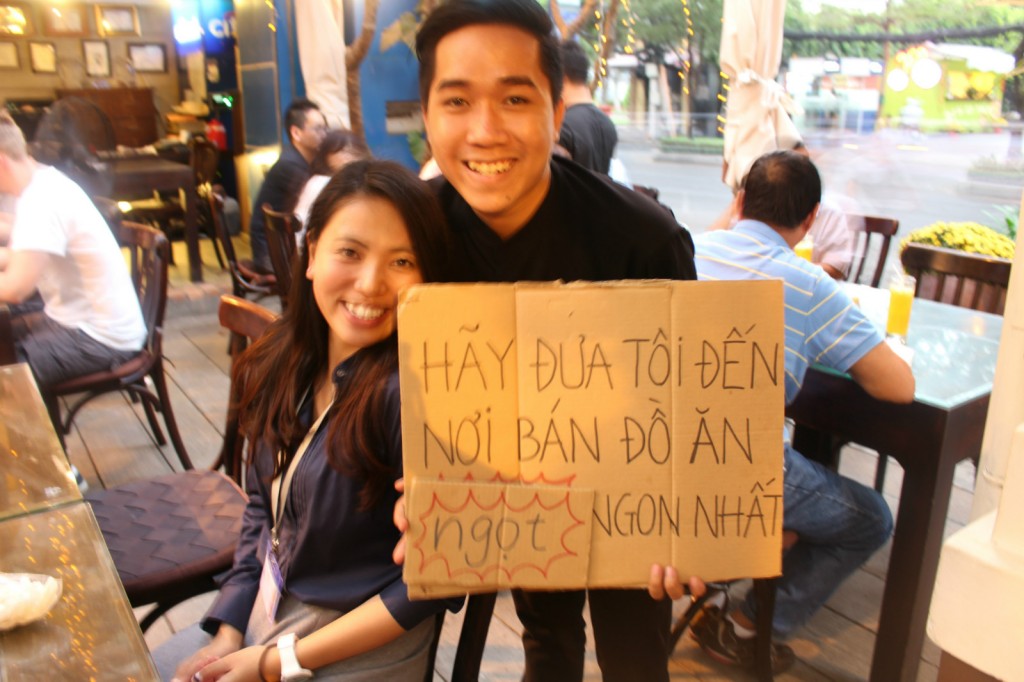 HÃY ĐƯA TÔI ĐẾN
NƠI BÁN ĐỒ ĂN
ngọt NGON NHẤT